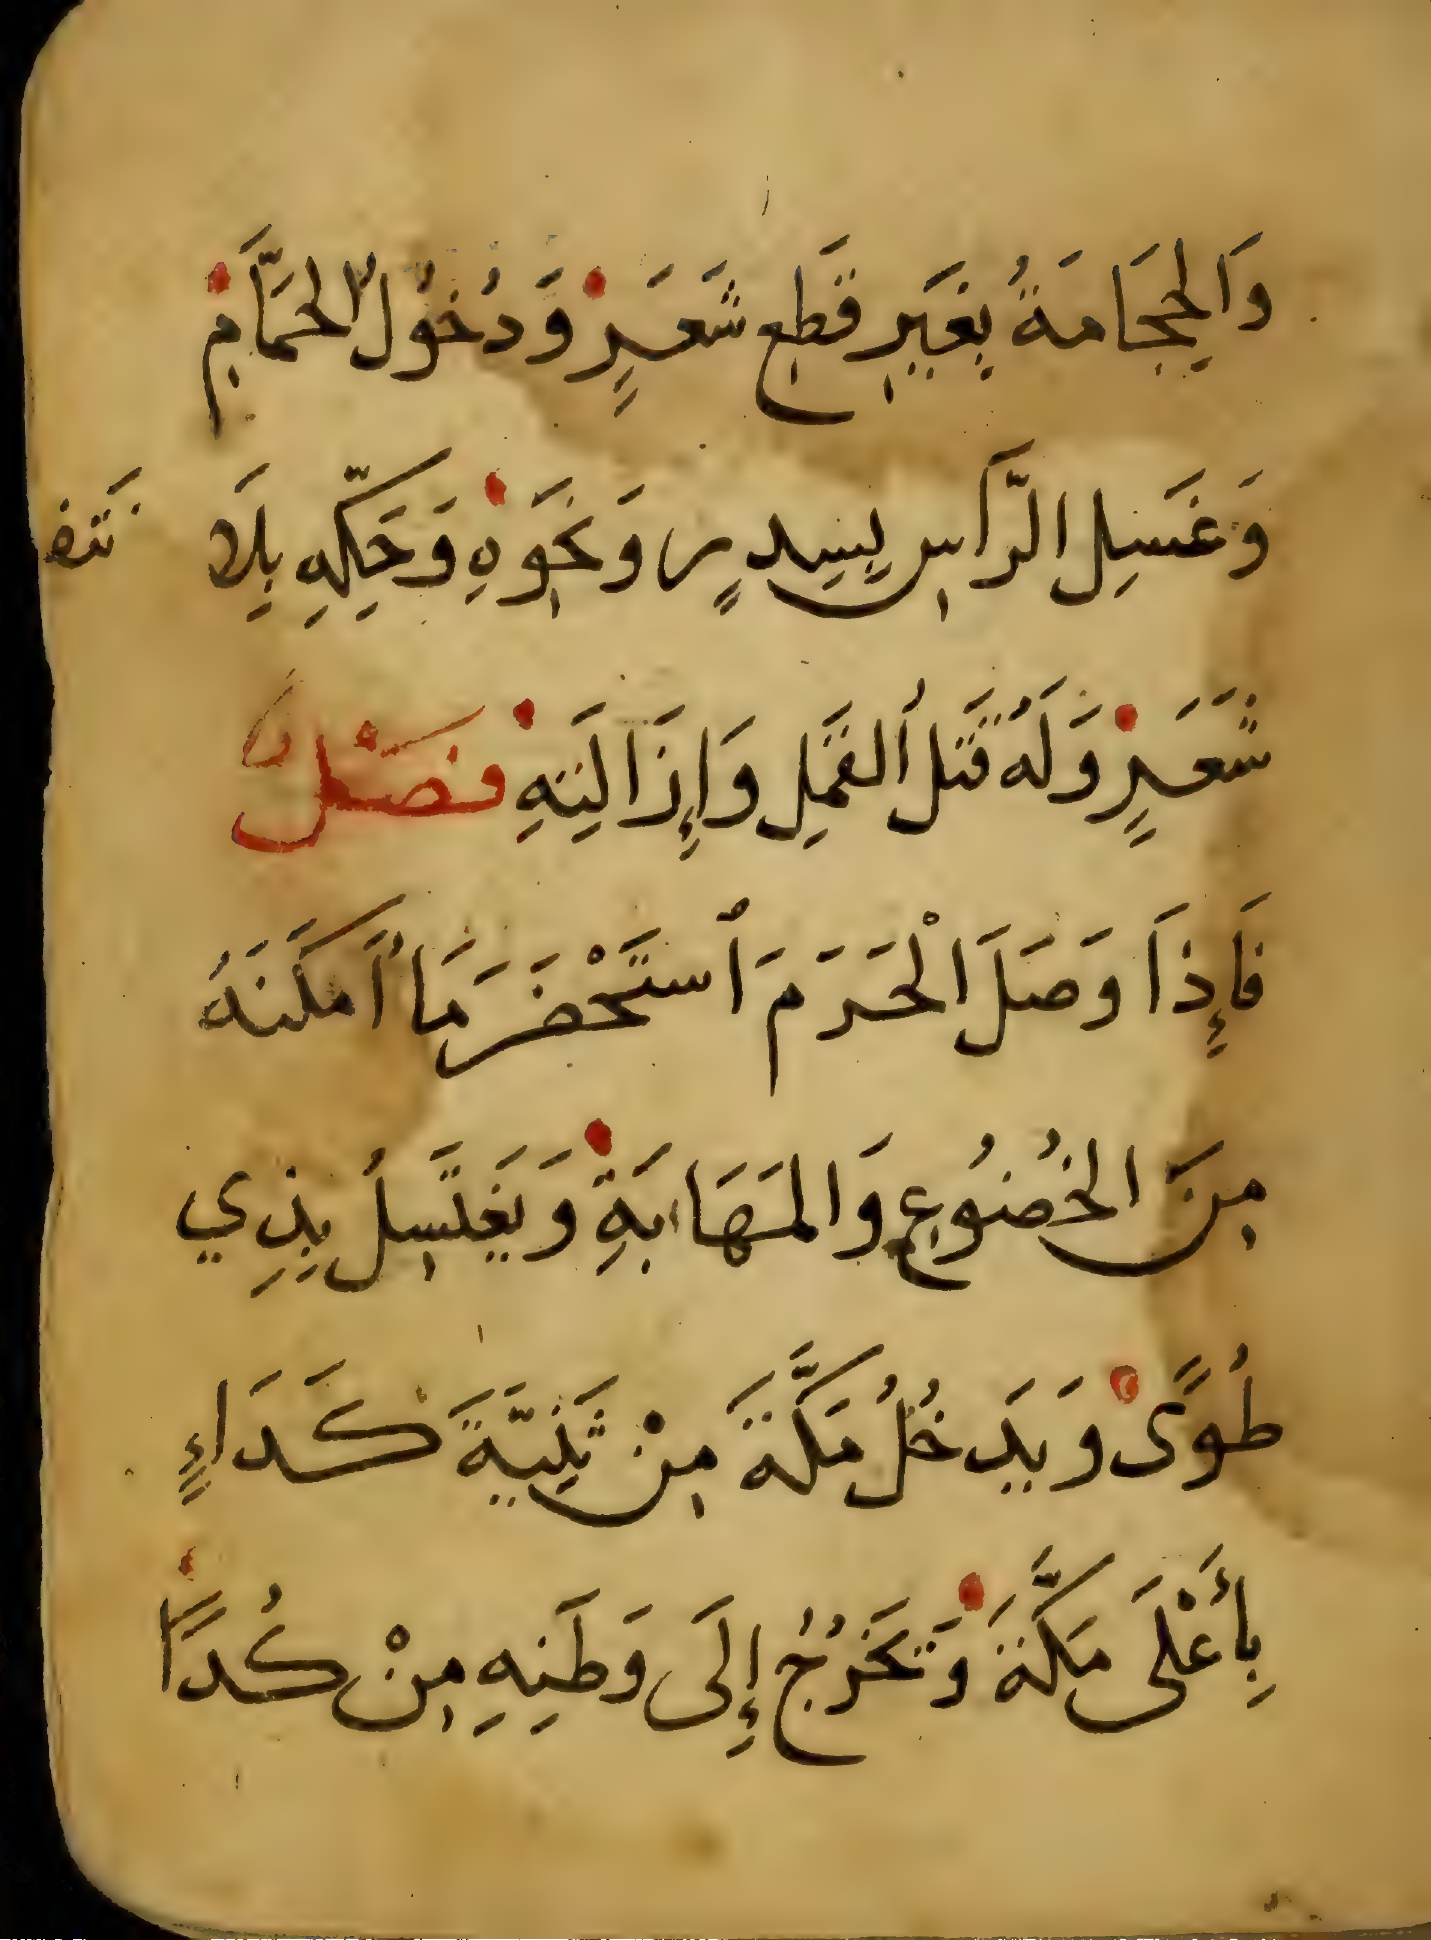 وَالْحِجَامَةُ بِغَيرِ قَطعِ شَعَرٍ وَدُخُولُ الحَمَّامِ
وَغَسلِ الرَّأسِ بِسِدرٍ وَنَحَوِهِ وَحَكِّهِ بِلَا نَتف
شَعَرٍ وَلَهُ قَتلُ القَملِ وَإِزَالَتِهِ فَصْلٌ
فَإِذَا وَصَلَ الْحَرَمَ ٱستَحْضَرَ مَا أَمكَنَهُ
مِنَ الخُضُوعِ وَالمَهَابَةِ وَيَغتَسِلُ بِذِي
طُوًى وَيَدخُلُ مَكَّةَ مِنْ ثَنِيَّةَ كَدَاءٍ
بِأَعْلَى مَكَّةَ وَيَخَرُجُ إِلَى وَطَنِهِ مِنْ كُدَاً